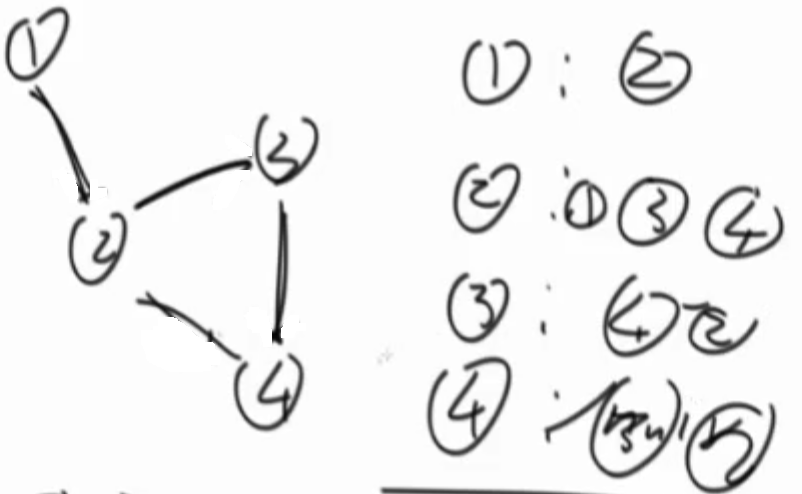 ①
③
②
④
①: ②
②: ① ③ ④
③: ④ ②
④: